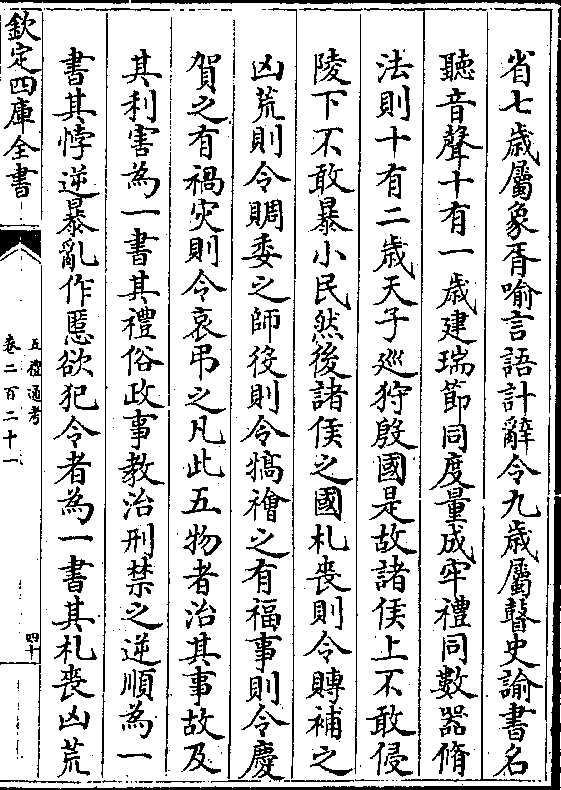 省七歲屬象胥喻言語計辭令九歲屬瞽史諭書名
聽音聲十有一歲建瑞節同度量成牢禮同數器脩
法則十有二歲天子廵狩殷國是故諸侯上不敢侵
陵下不敢暴小民然後諸侯之國札喪則令賻補之
凶荒則令賙委之師役則令犒禬之有福事則令慶
賀之有禍烖則令哀弔之凡此五物者治其事故及
其利害為一書其禮俗政事教治刑禁之逆順為一
書其悖逆暴亂作慝欲犯令者為一書其札喪凶荒
欽定四庫全書
五禮通考
卷二百二十一
四十